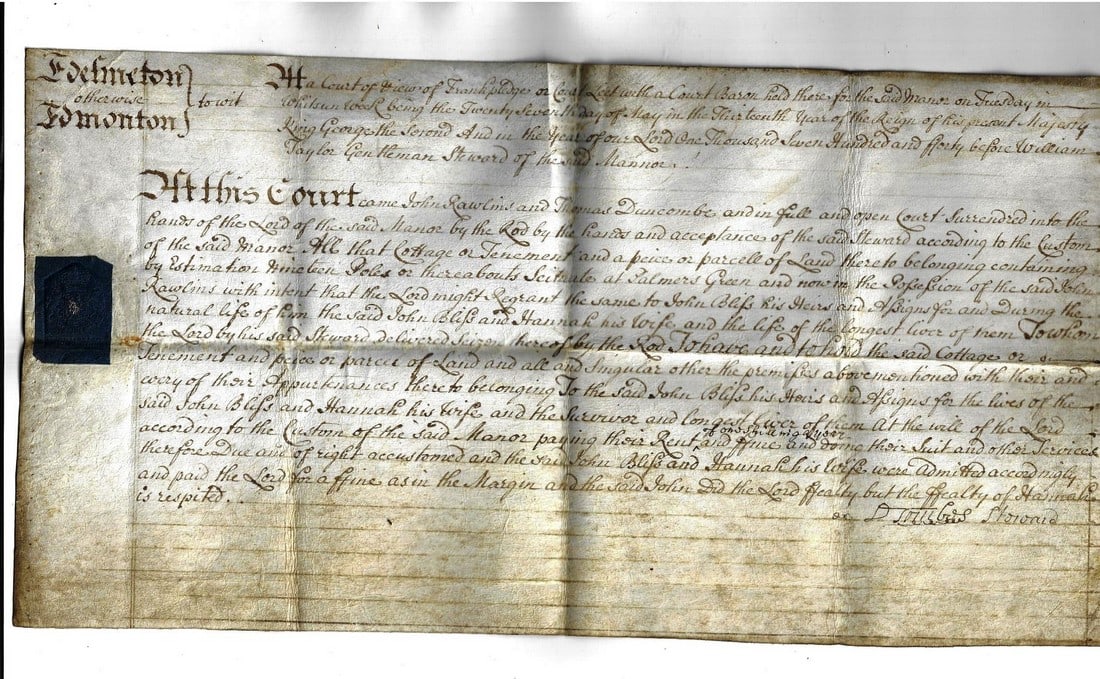 Edelmeton
otherwise
Edmonton
to wit
At a Court of View of Frankpledge or Court Leet with a Court Baron held there for the said Manor on Tuesday in
Whitsun Week being the Twenty Seventh day of May in the Thirteenth Year of the Reign of his present Majesty
King George the Second And in the Year of our Lord One Thousand Seven Hundred and fforty before William
Taylor Gentleman Steward of the said Mannor
At this Court came John Rawlins and Thomas Duncombe and in full and open Court Surrendred into the
hands of the Lord of the said Manor by the Rod by the hands and acceptance of the said Steward according to the Custom
of the said Manor All that Cottage or Tenement and a peice or parcell of Land thereto belonging containing
by Estimation Poles or thereabouts Scituate at Palmers Green and now in the Possession of the said John
Rawlins with intent that the Lord might Regrant the same to John Bliss his Heirs and Assigns for and During the
natural life of him the said John Bliss and Hannah his Wife and the life of the longest liver of them To whom
the Lord by his said Steward delivered Seizen thereof by the Rod To have and to hold the said Cottage or
Tenement and peice or parcel of Land and all and Singular other the premises above mentioned with their and
every of their Appurtenances thereto belonging To the said John Bliss his Heirs and Assigns for the lives of the
said John Bliss and Hannah his Wife and the Survivor and longest liver of them At the will of the Lord
according to the Custom of the said Manor paying their Rent and ffine and doing their Suit and other Services
therefore Due and of right accustomed and the said John Bliss and Hannah his Wife were Admitted accordingly
and paid the Lord for a ffine as in the Margin and the said John Did the Lord ffealty but the ffealty of Hannah
is respited
Steward